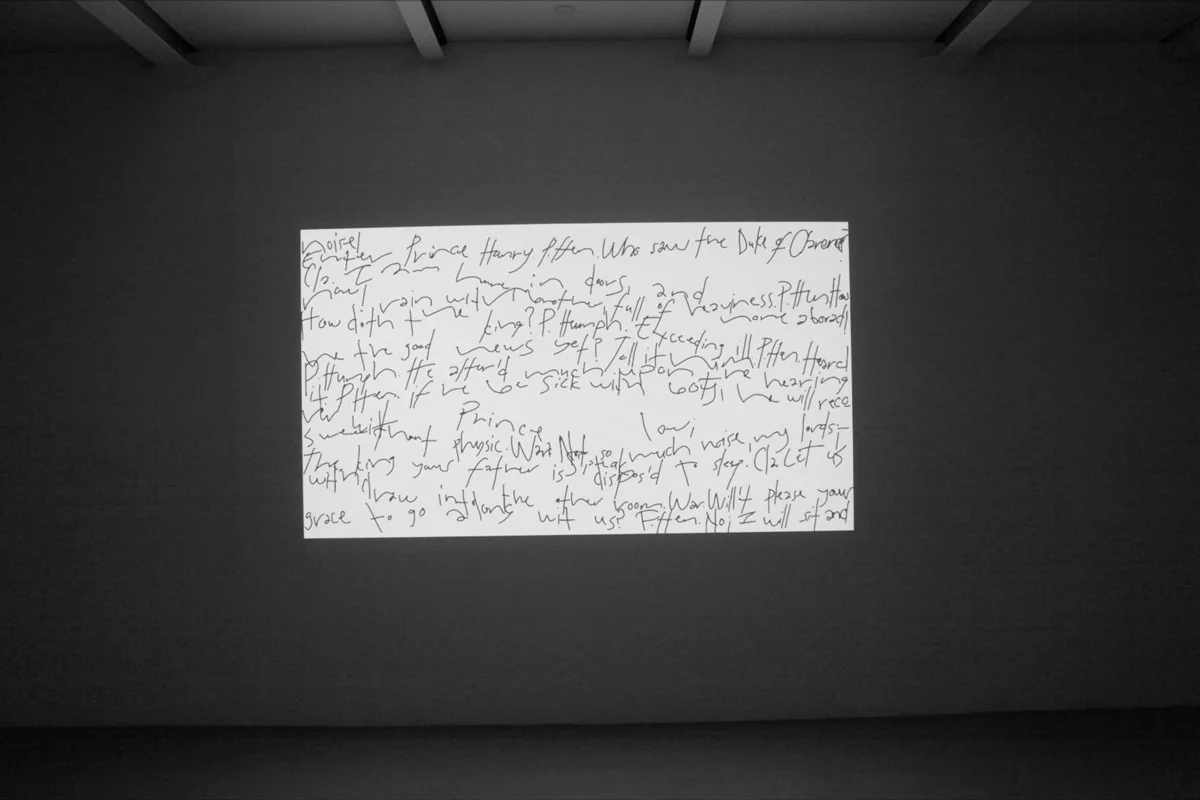 noise!
Enter Prince Henry. P. Hen. Who saw the Duke of Clarence?
Cla. I am here in doors, and
rain within brother, full of heaviness. P. Hen. How
now!
How doth the king? P. Humph. Exceeding ill. P. Hen. Heard
none abroad!
he the good news yet? Tell it unto him.
P. Humph. He alter'd much upon the hearing
it. P. Hen. If he be sick with joy, he will reco
ver without physic. War. Not so much noise, my lords:—
Sweet Prince, speak low;
The king your father is dispos'd to sleep. Cla. Let us
withdraw into the other room. War. Will't please your
grace to go along with us? P. Hen. No; I will sit and